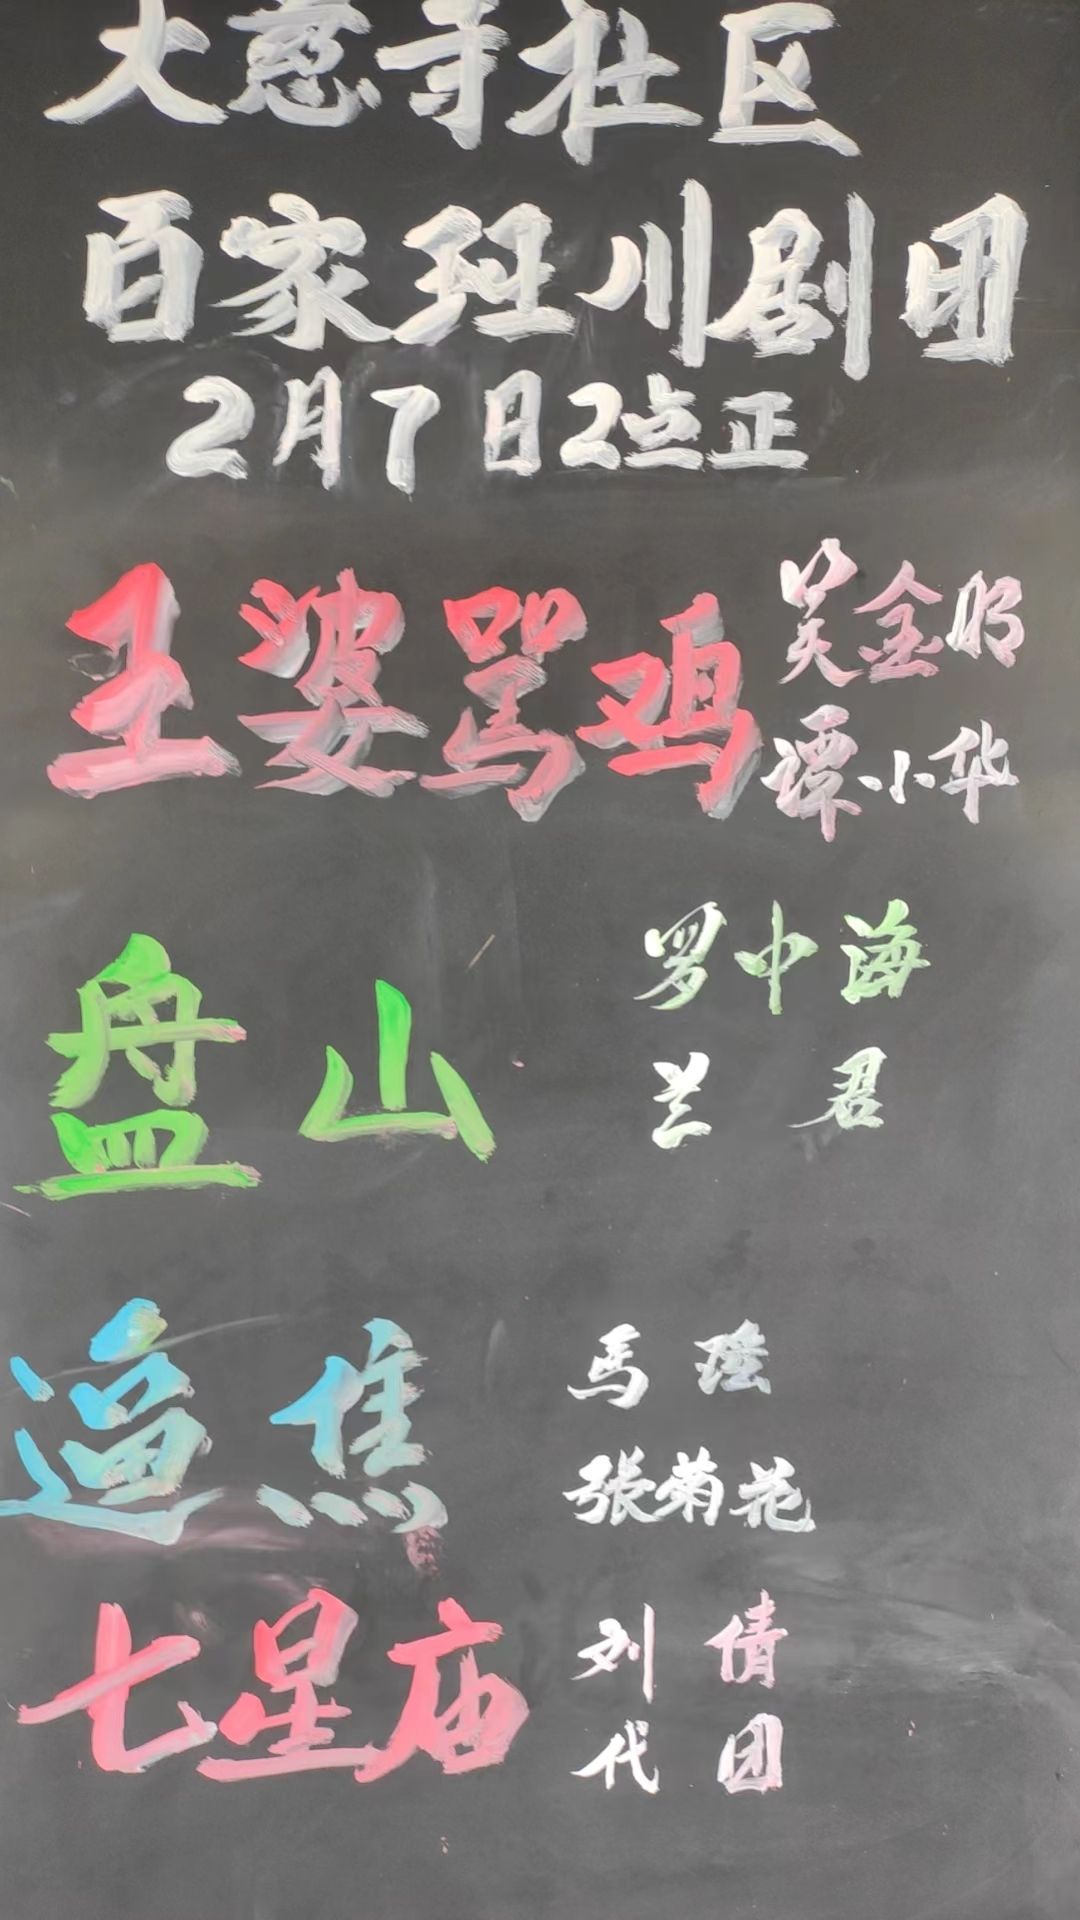 大慈寺社区
百家班川剧团
2月7日2点正
王婆骂鸡
吴金明
谭小华
盘山
罗中海
兰君
逼焦
馬瑶
張菊花
七星庙
刘倩
代团